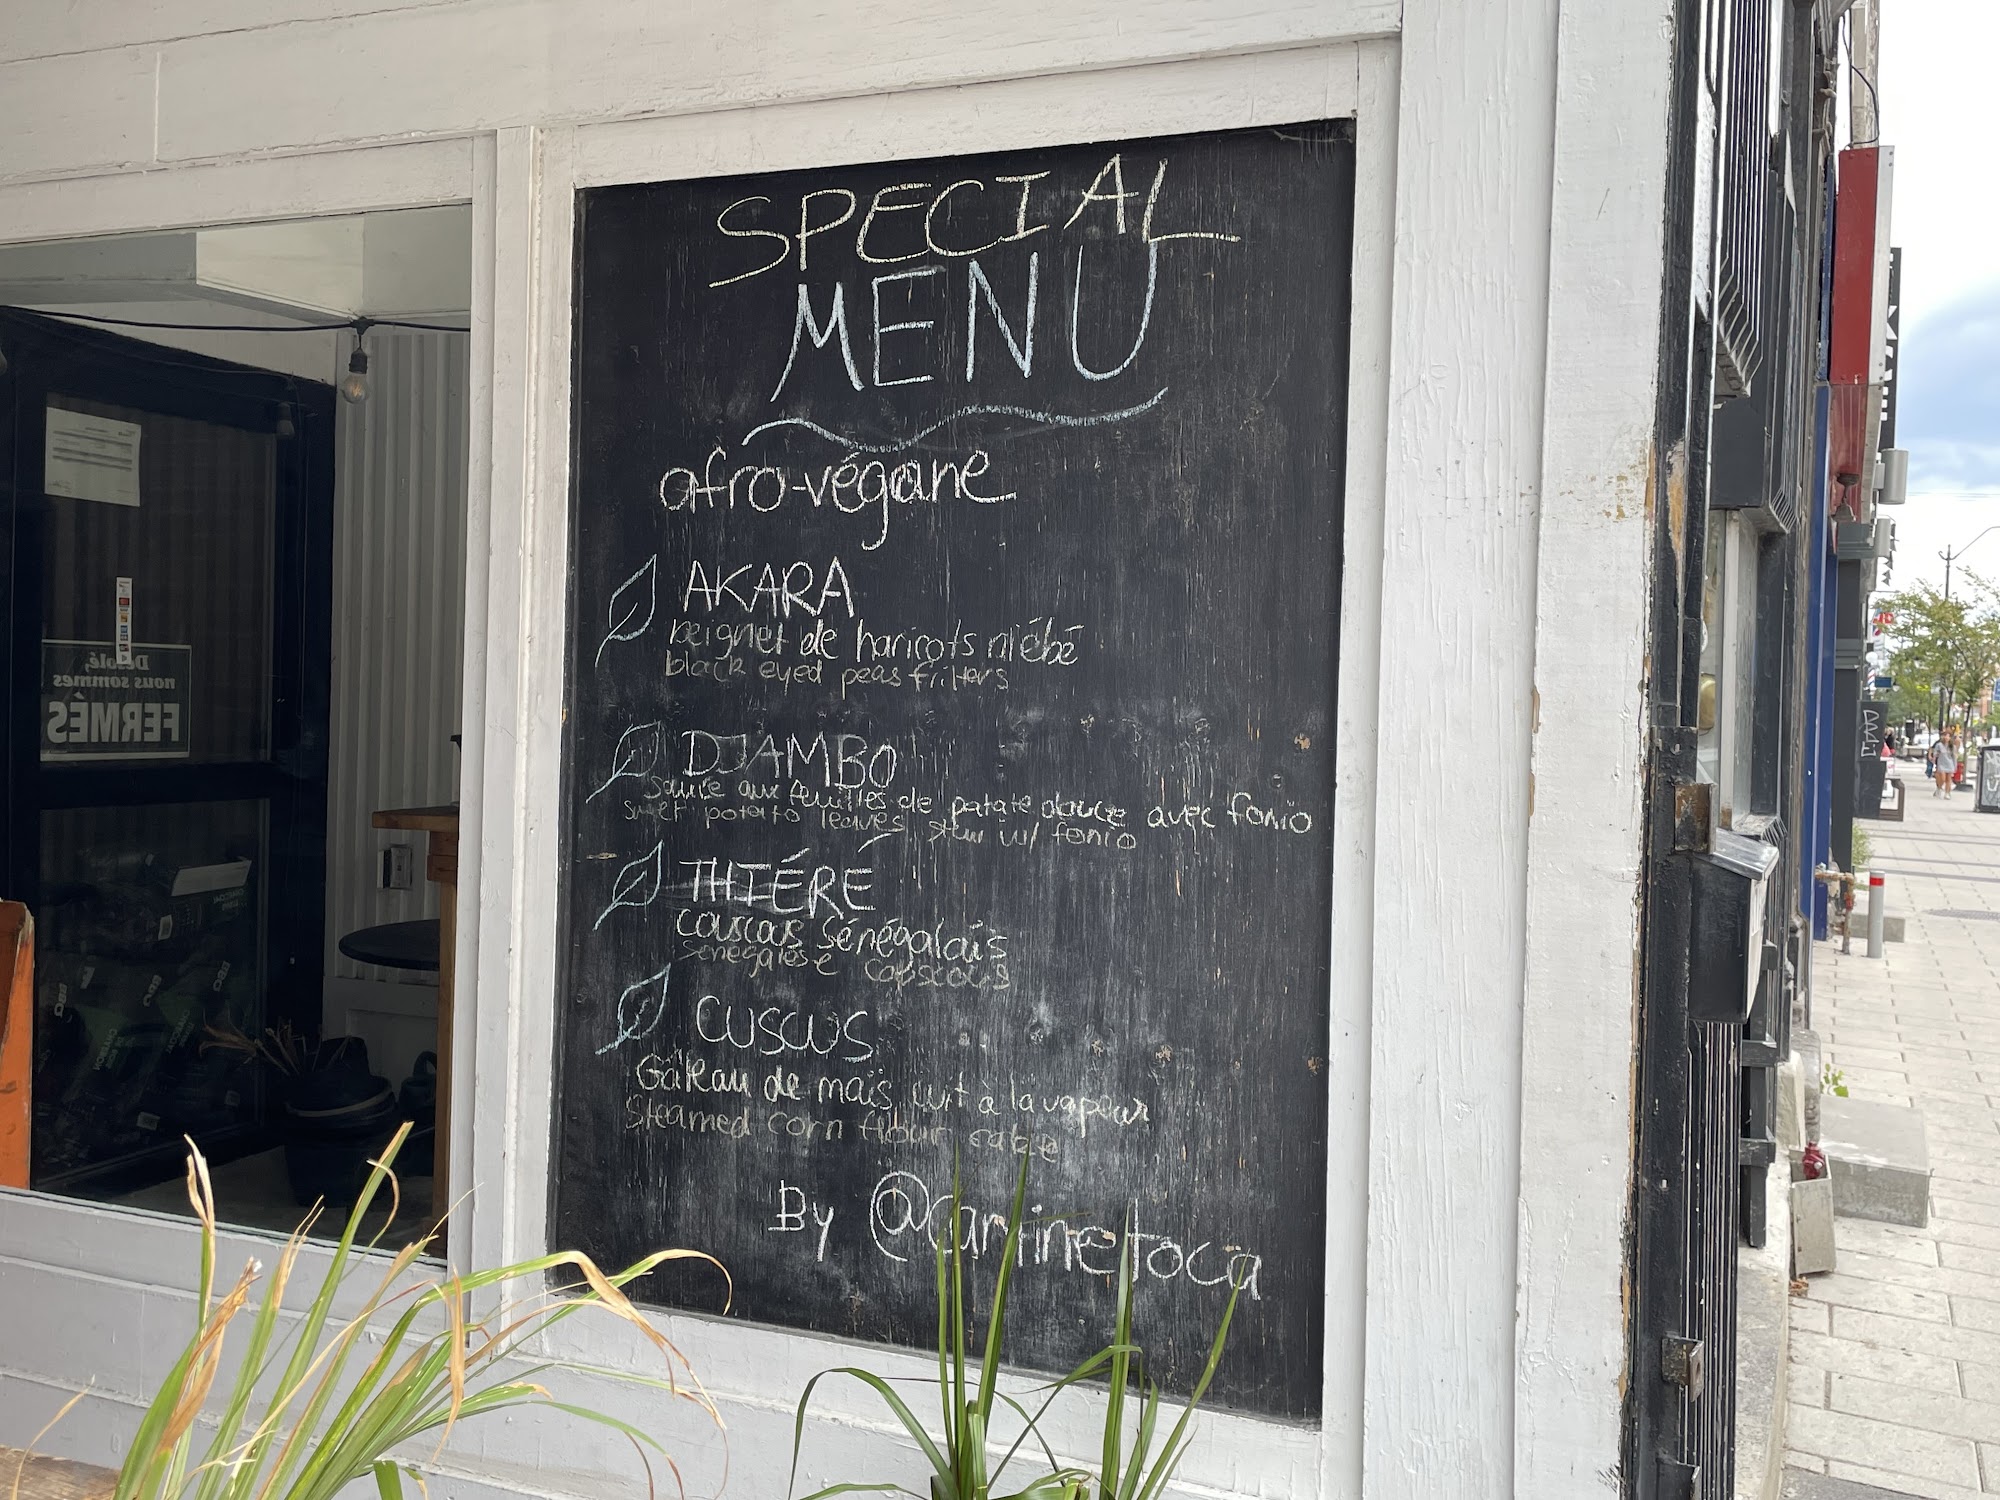 SPECIAL
MENU
afro-végane
AKARA
beignet de haricots niébé
black eyed peas fritters
DJAMBO
sauce aux feuilles de patate douce avec fonio
sweet potato leaves stew w/ fonio
THIÉRE
couscous sénégalais
senegalese couscous
CUSCUS
Gâteau de maïs cuit à la vapeur
Steamed corn flour cake
By @carminetoca
Désolé,
nous sommes
FERMÉS
BBQ